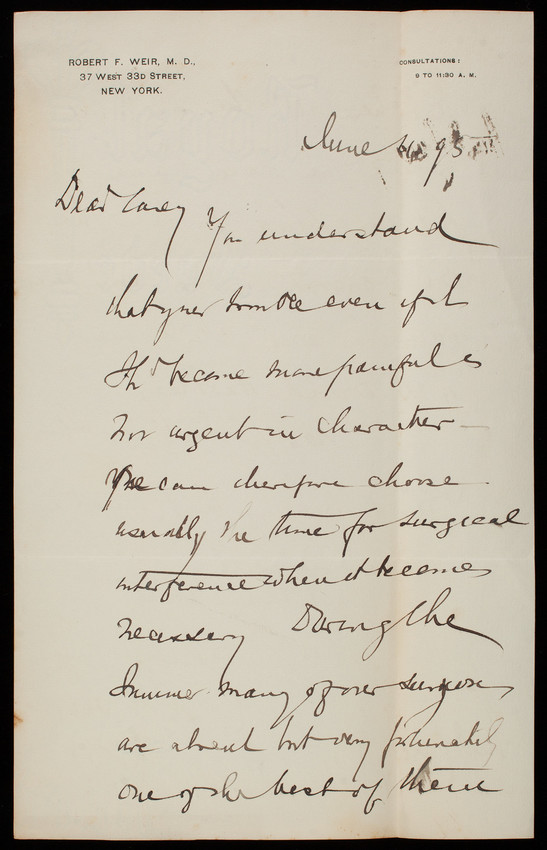 ROBERT F. WEIR, M. D.,
37 WEST 33D STREET,
NEW YORK.
CONSULTATIONS:
9 TO 11:30 A. M.
June 95
Dear Casey
You understand
that your trouble even if it
shd become more painful is
not urgent in character —
One can therefore choose
usually the time for surgical
interference when it becomes
necessary During the
Summer many of our surgeons
are absent but very fortunately
one of the best of them